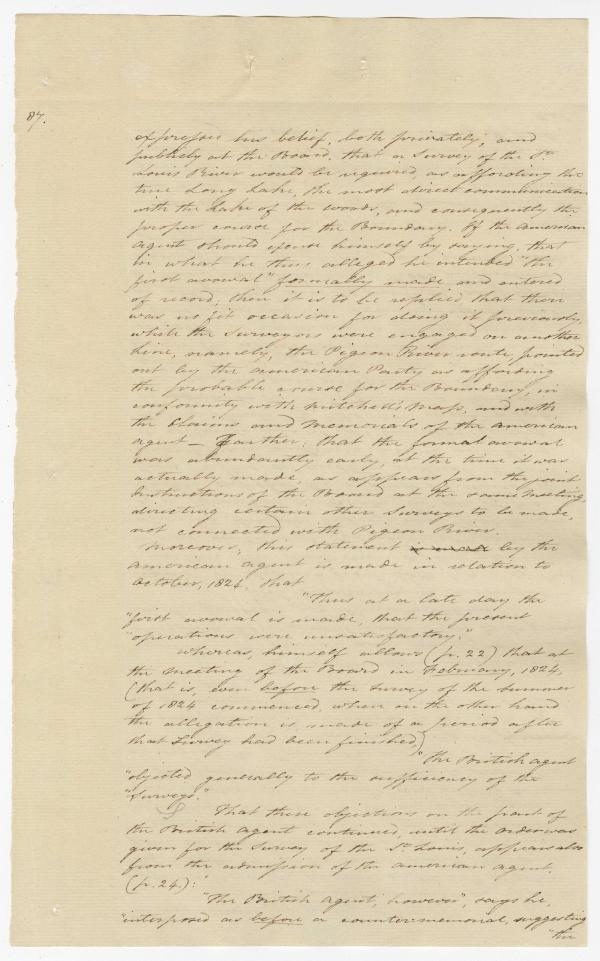 87.
expresses his belief, both privately, and
publicly at the Board, that a Survey of the St.
Louis River would be required, as affording the
true Long Lake, the most direct communication
with the Lake of the Woods, and consequently the
proper course for the Boundary. If the American
Agent should excuse himself by saying, that
in what he thus alleged he intended "the
first avowal" formally made, and entered
of record; then it is to be replied that there
was no fit occasion for doing it previously,
while the Surveyors were engaged on another
Line, namely, the Pigeon River route, pointed
out by the American Party as affording
the probable course for the Boundary, in
conformity with Mitchell's Map, and with
the Claims and Memorials of the American
Agent — Farther; that the formal avowal
was abundantly early, at the time it was
actually made, as appears from the joint
Instructions of the Board at the same meeting,
directing certain other Surveys to be made,
not connected with Pigeon River.
Moreover, this statement by the
American Agent is made in relation to
October, 1824, that
"Thus at a late day the
"first avowal is made, that the present
"operations were unsatisfactory:"
whereas, himself allows (p. 22) that at
the Meeting of the Board in February, 1824,
(that is, even before the Survey of the Summer
of 1824 commenced, when on the other hand
the allegation is made of a period after
that Survey had been finished,)
"the British Agent
"objected generally to the sufficiency of the
"Surveys."
That these objections on the part of
the British Agent continued, until the order was
given for the Survey of the St. Louis, appears also
from the admission of the American Agent.
(p. 24.):
"The British Agent, however", says he,
"interposed as before a counter-memorial, suggesting
"the